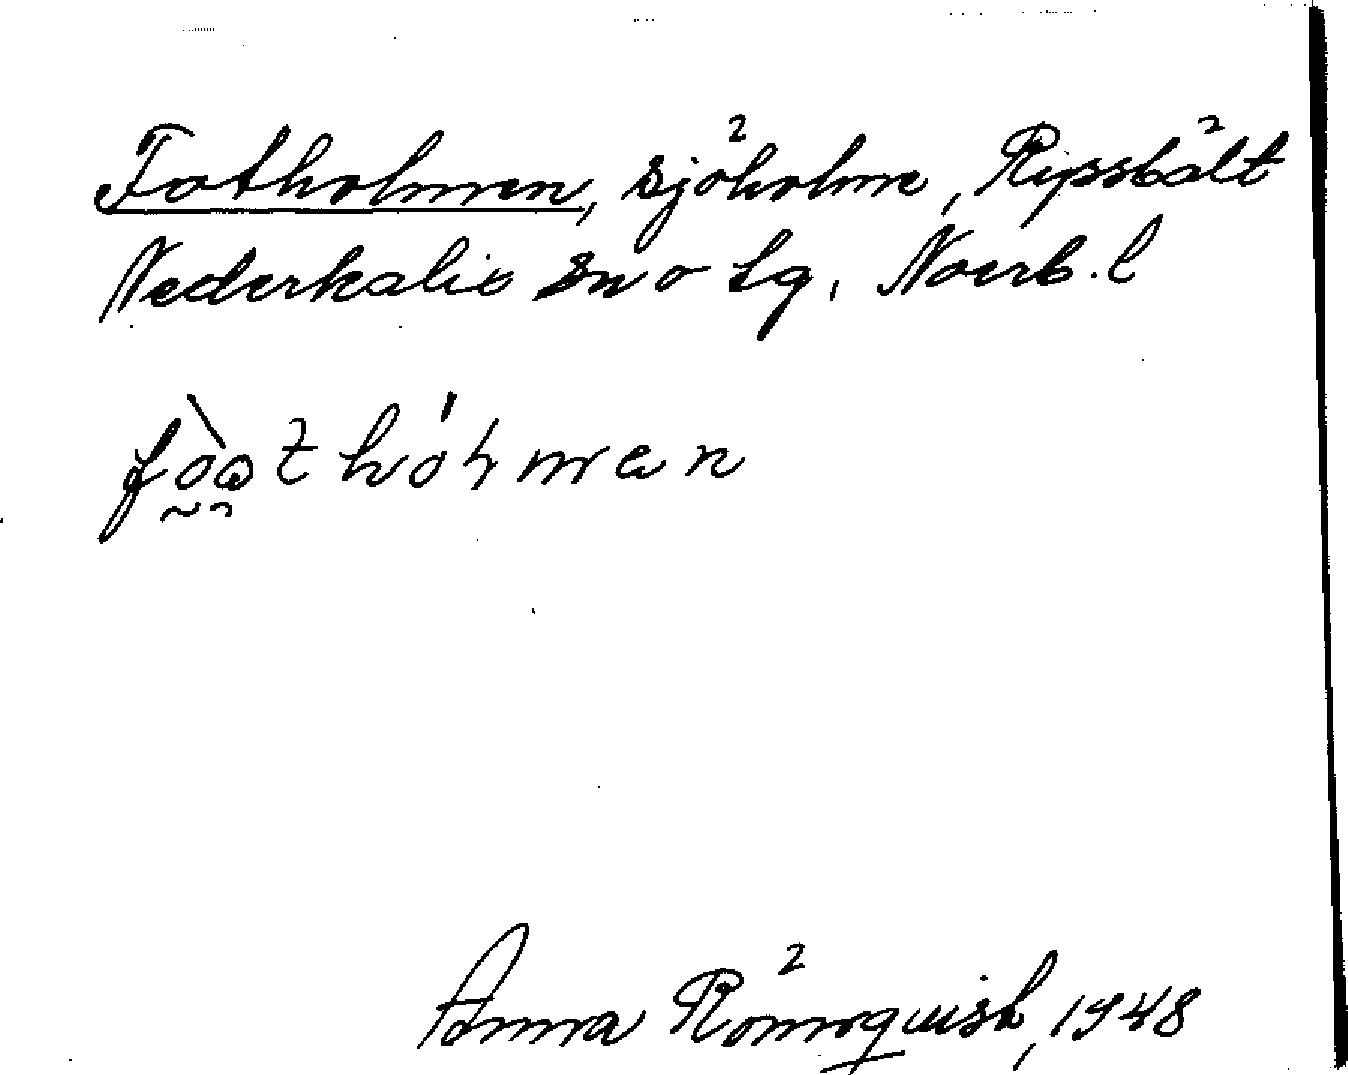 Fotholmen, sjöholme, Ripsbält
Nederkalix sn o tg, Norrb. l
Anna Rönnquist, 1948